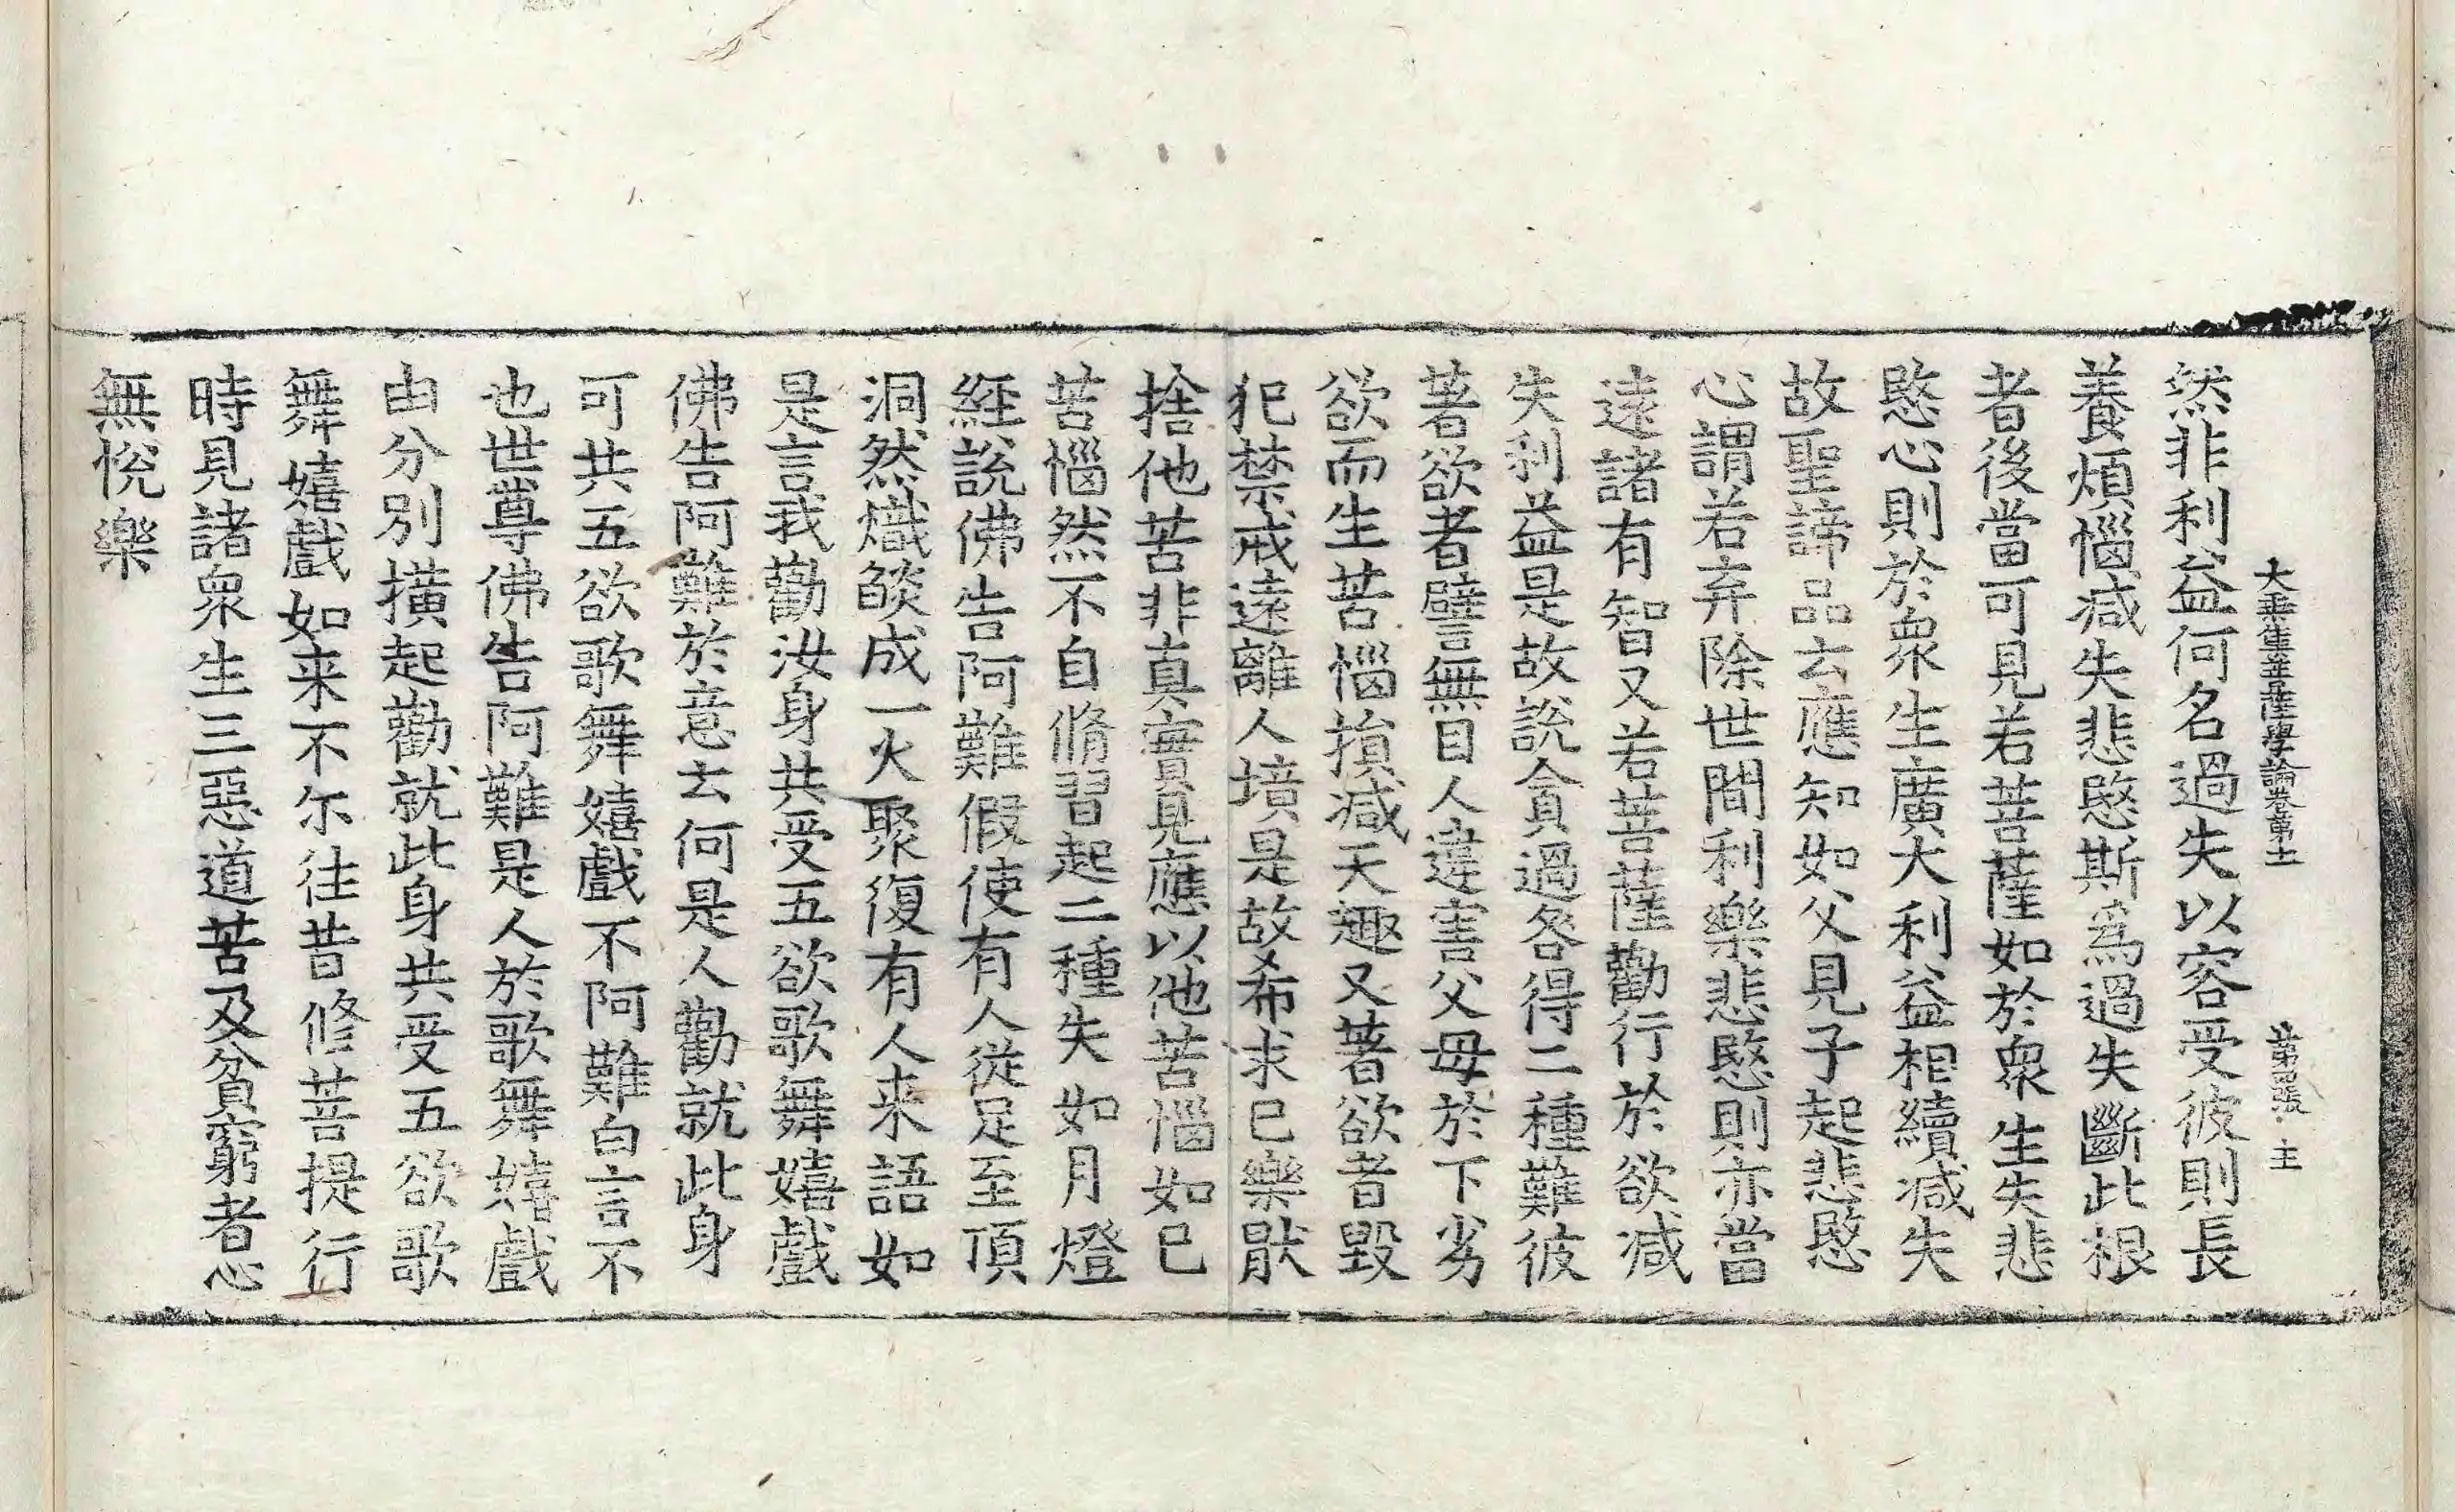 大乘集菩薩學論卷第十一 第四張 主
然非利益何名過失以容受彼則長
養煩惱減失悲愍斯爲過失斷此根
者後當可見若菩薩如於衆生失悲
愍心則於衆生廣大利益相續減失
故聖諦品云應知如父見子起悲愍
心謂若弃除世間利樂悲愍則亦當
遠諸有智又若菩薩勸行於欲減
失利益是故說貪過咎得二種難彼
著欲者譬無目人違害父母於下劣
欲而生苦惱損減天趣又著欲者毀
犯禁戒遠離人境是故希求已樂猒
捨他苦非真實見應以他苦惱如已
苦惱然不自脩習起二種失如月燈
經說佛告阿難假使有人從足至頂
洞然熾㷔成一火聚復有人来語如
是言我勸汝身共受五欲歌舞嬉戲
佛告阿難於意云何是人勸就此身
可共五欲歌舞嬉戲不阿難白言不
也世尊佛告阿難是人於歌舞嬉戲
由分別撗起勸就此身共受五欲歌
舞嬉戲如来不尓往昔修菩提行
時見諸衆生三惡道苦及貧窮者心
無悅樂